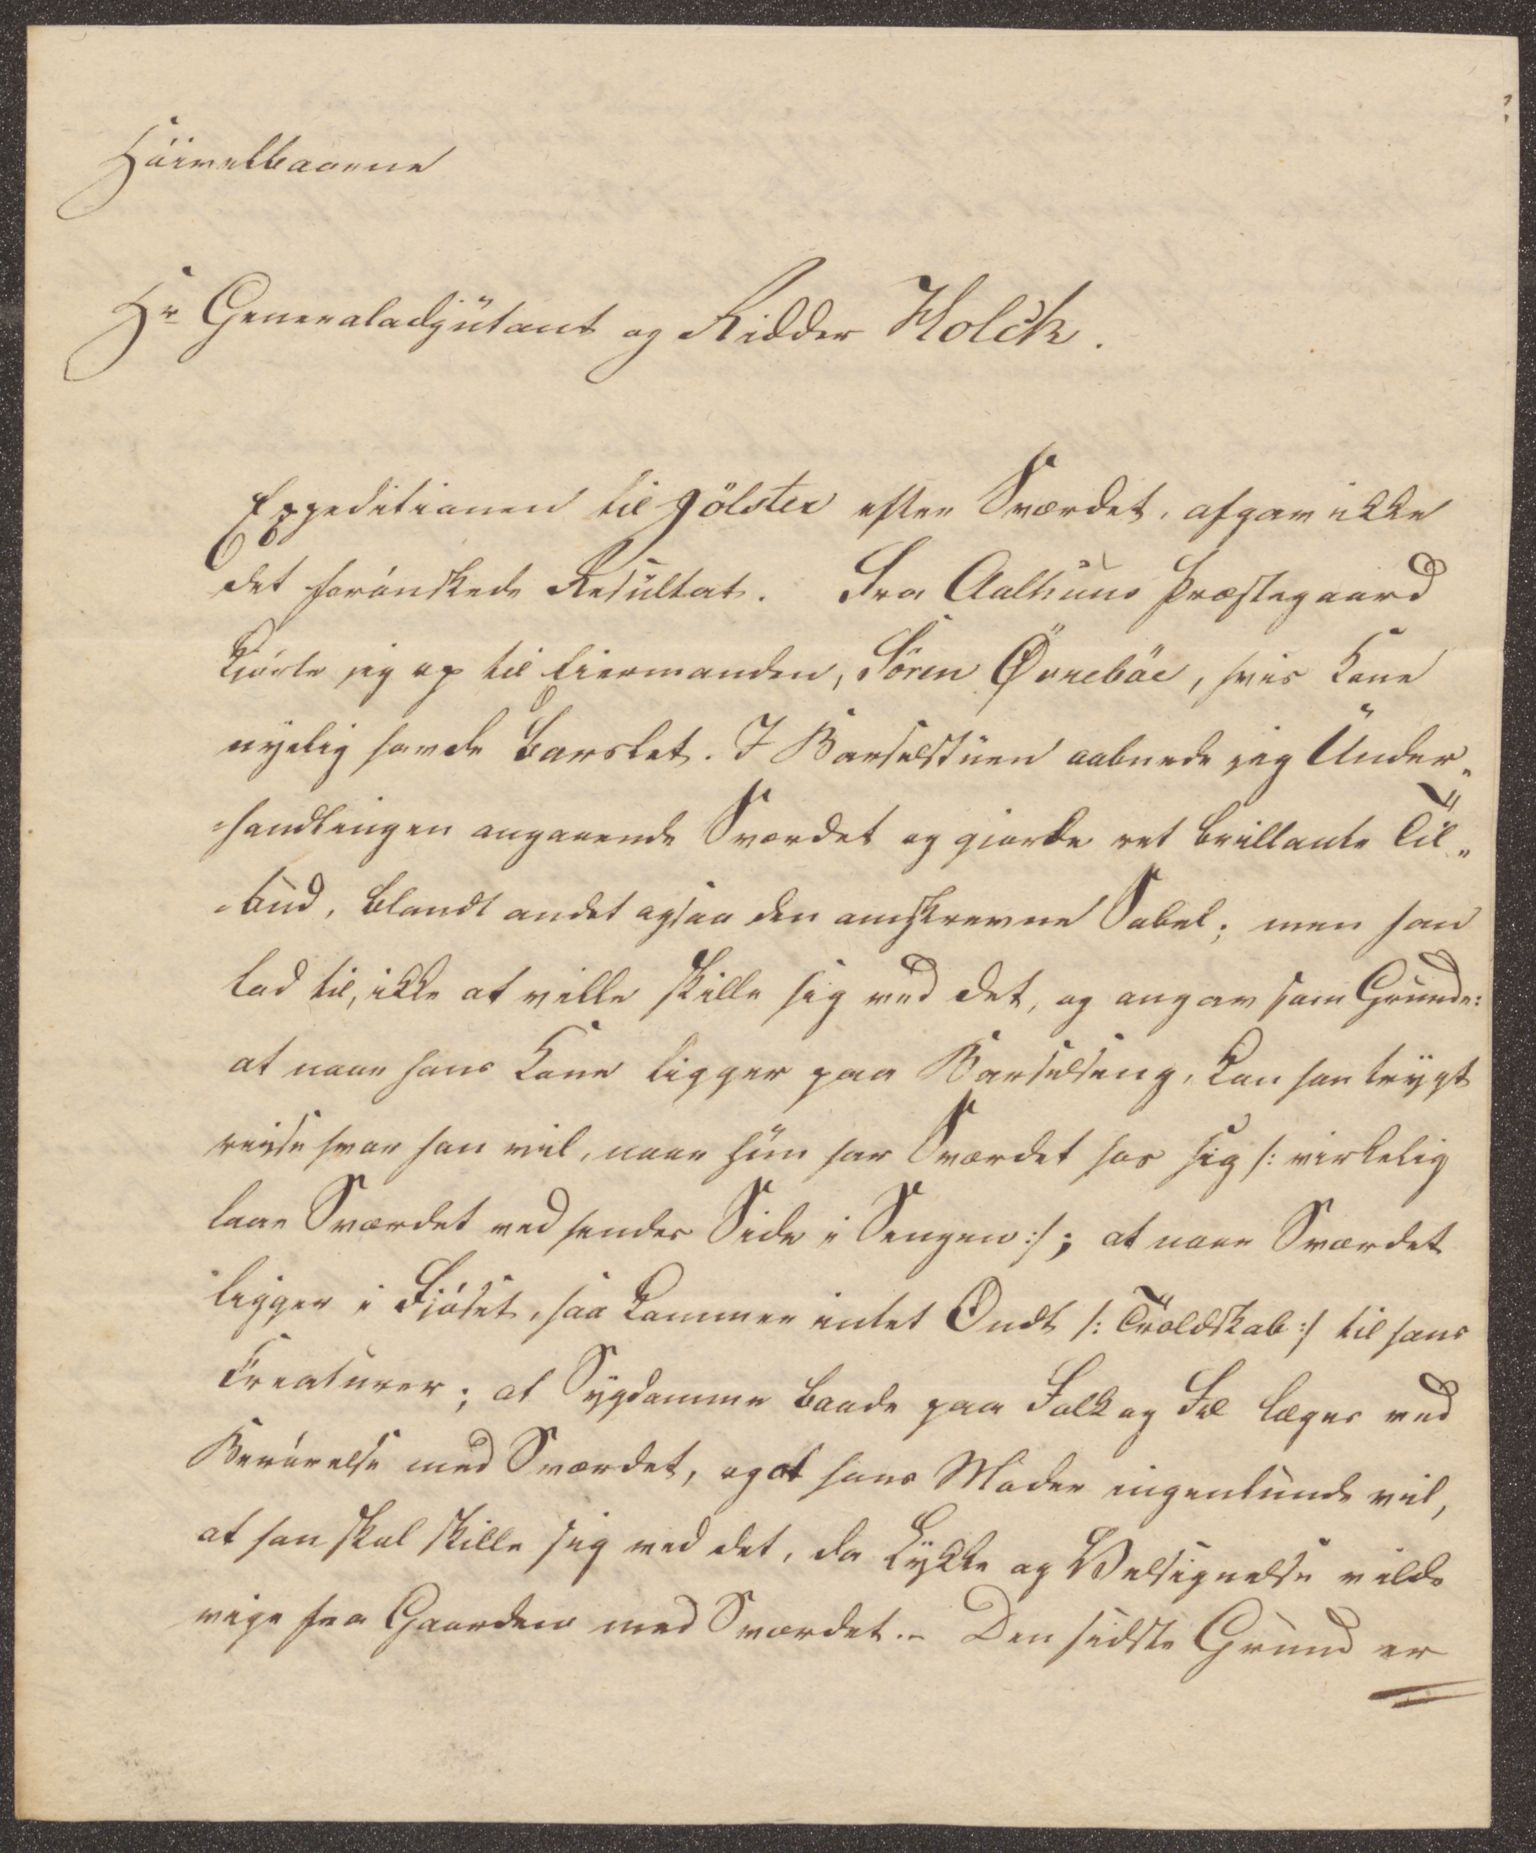 Höivelbaarne
Hr Generaladjutant og Ridder Holck.
Expeditionen til Jölster efter Sværdet, afgav ikke
det forönskede Resultat. Fra Aalhuus Præstegaard
kjörte jeg op til Eiermanden, Sören Övreböe, hvis Kone
nyelig havde barslet. I Barselstuen aabnede jeg Under„
„handlingen angaaende Sværdet og giorde ret brillante Til„
„bud, blandt andet ogsaa den omskrevne Sabel; men han
lod til, ikke at ville skille sig ved det, og angav som Grunde:
at naar hans Kone ligger paa Barselseng, kan han trygt
reise hvor han vil, naar hun har Sværdet hos sig /: virkelig
laae Sværdet ved hendes Side i Sengen :/; at naar Sværdet
ligger i Fjöset, saa kommer intet Ondt /: Troldskab :/ til hans
Kreaturer; at Sygdomme baade paa Folk og Fæ læges ved
Berörelse med Sværdet, og at hans Moder ingenlunde vil,
at han skal skille sig ved det, da Lykke og Velsignelse vilde
vige fra Gaarden med Sværdet. – Den sidste Grund er